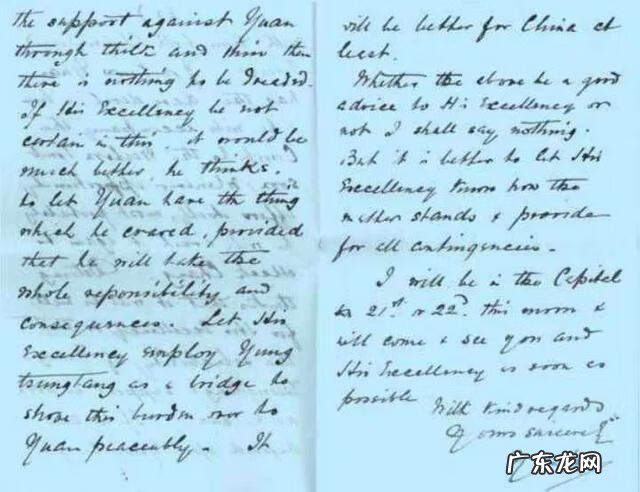 the support against Yuan
through thick and thin then
there is nothing to be dreaded.
If His Excellency be not
certain in this, it would be
much better, he thinks,
to let Yuan have the thing
which he craved, provided
that he will take the
whole reponsibility and
consequences. Let His
Excellency employ Yung
tsungtang as a bridge to
shove this burden over to
Yuan peaceably. It
will be better for China at
least.
Whether the above be a good
advice to His Excellency or
not I shall say nothing.
But it is better to let His
Excellency know how the
matter stands & provide
for all contingencies.
I will be in the Capital
on 21st or 22d. this moon &
will come & see you and
His Excellency as soon as
possible
With kind regards
Yours sincerely
广东龙网